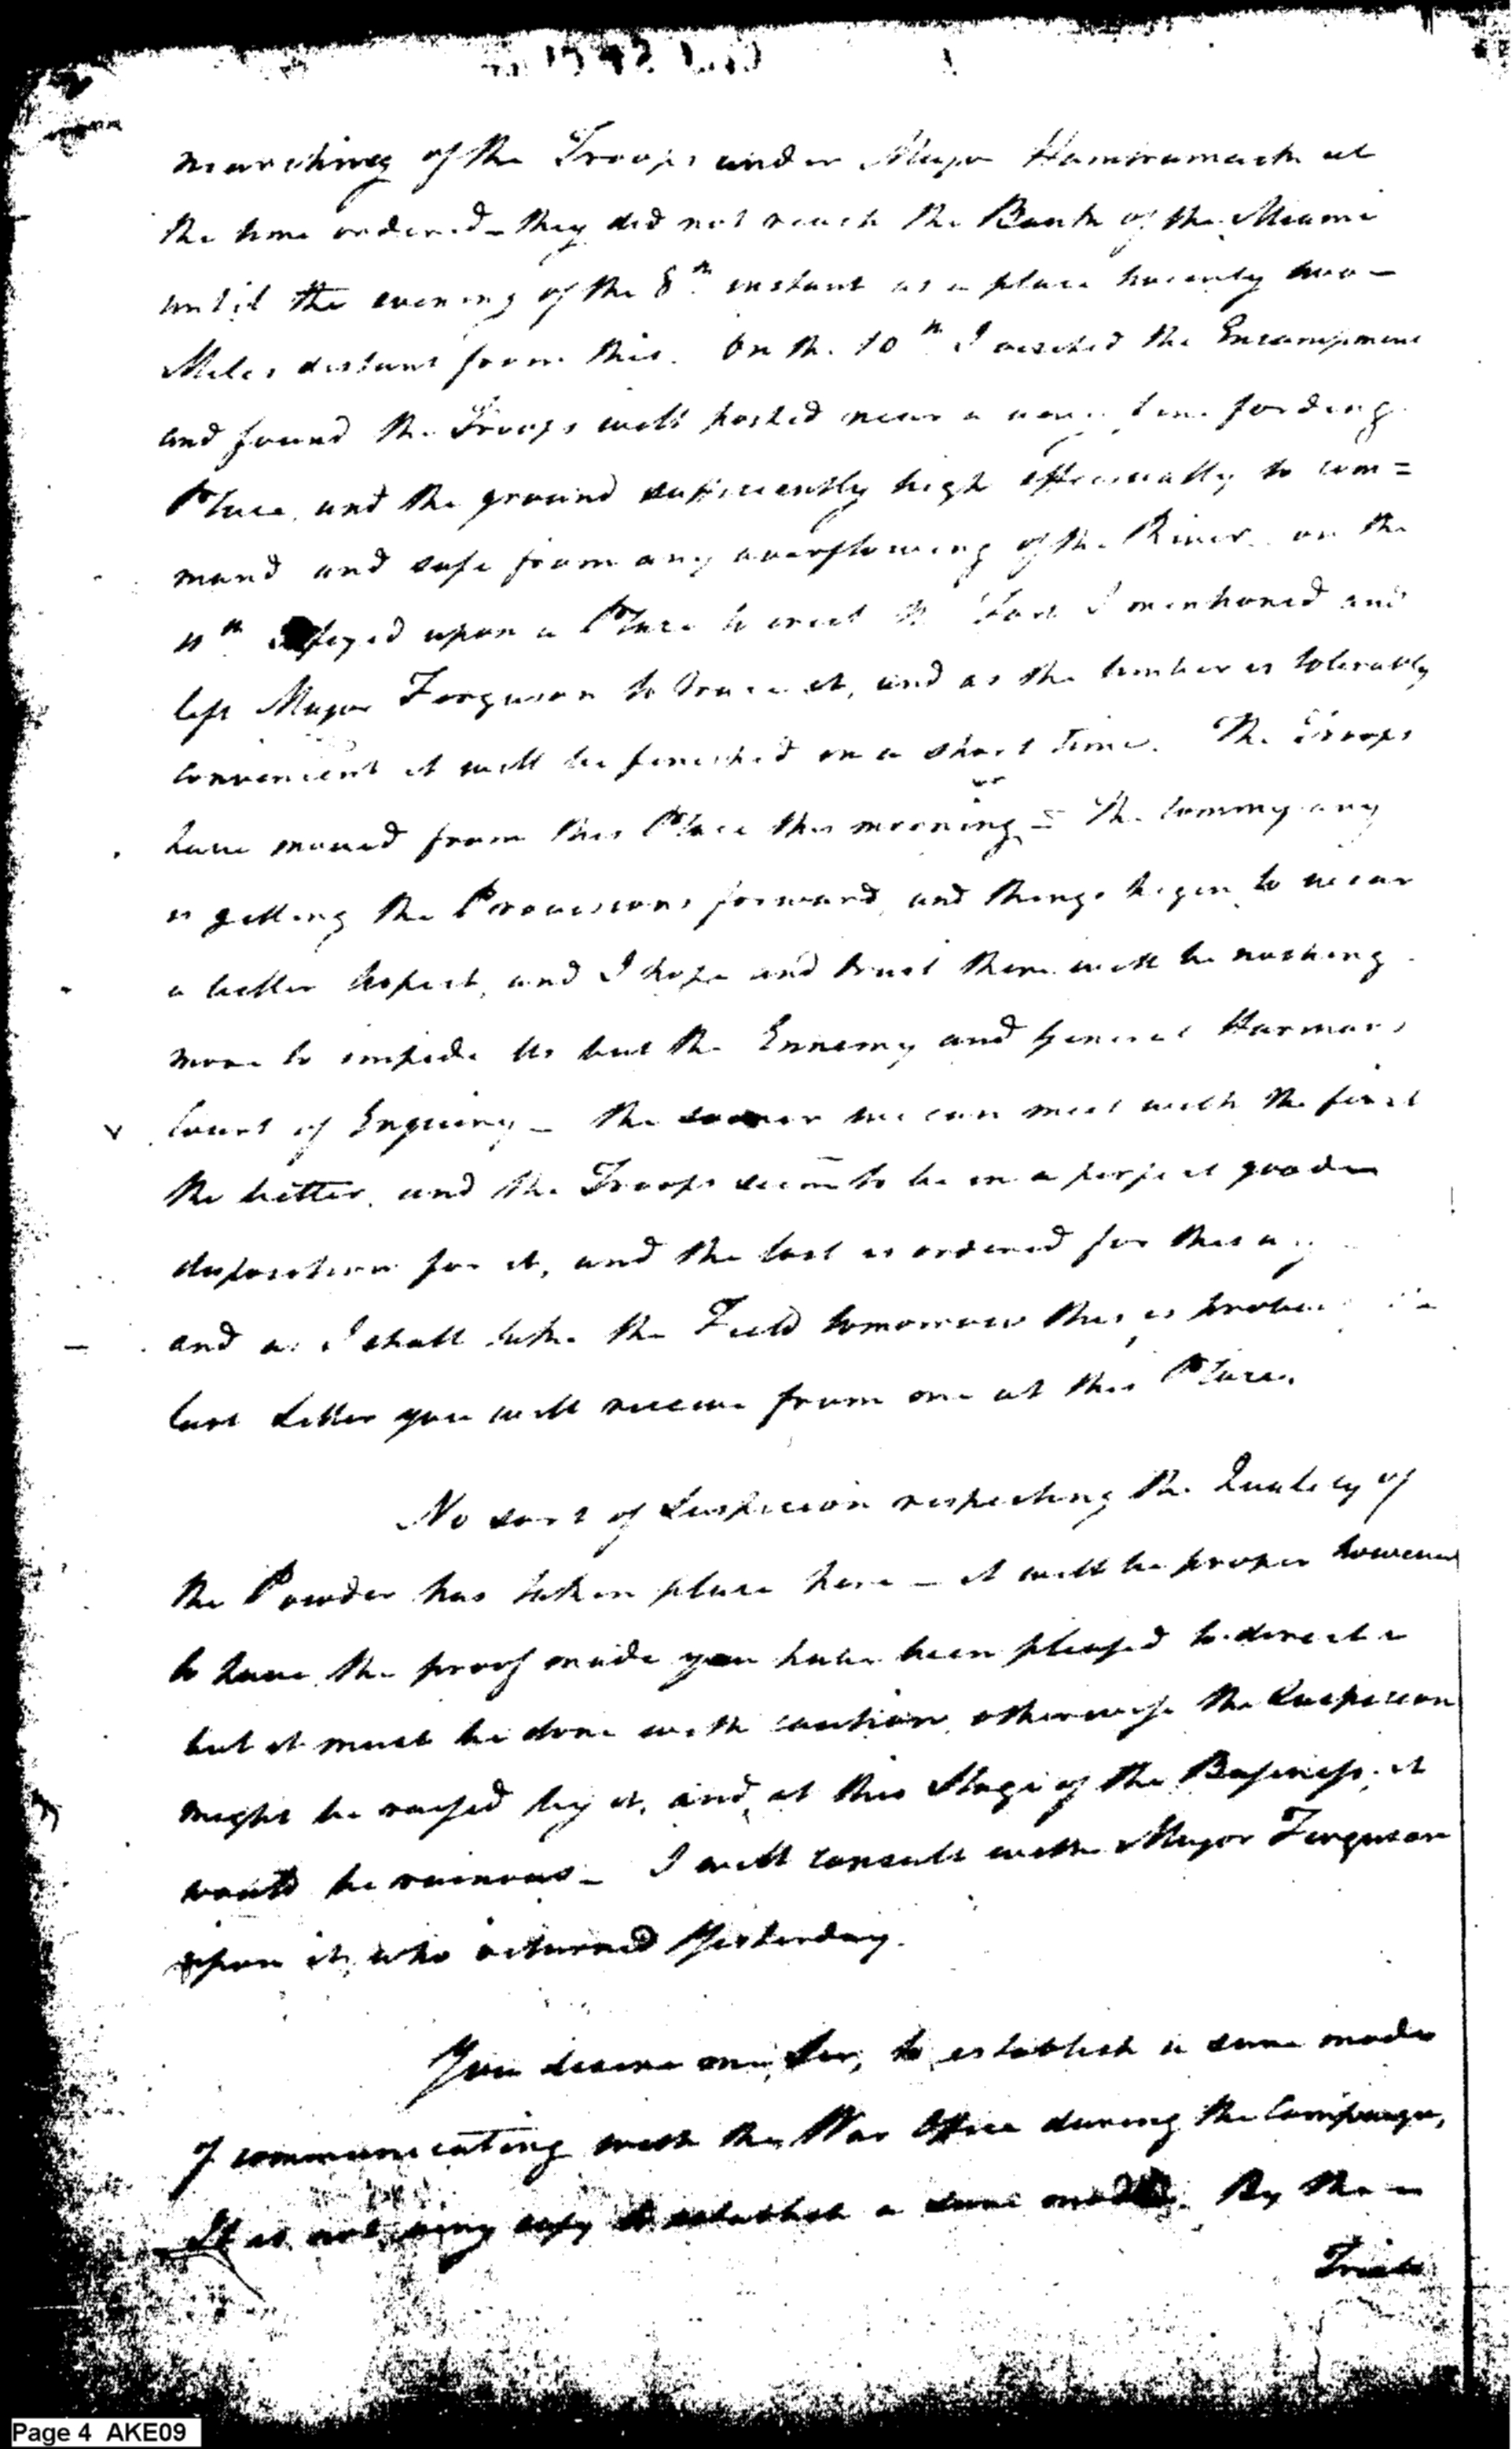 marching of the Troops under Major Hamtramack at
the time ordered – they did not reach the Bank of the Miami
until the evening of the 8th instant at a place twenty two –
Miles distant from this. On the 10th I visited the Encampment
and found the Troops well posted near a very fine fording
Place, and the ground sufficiently high effectually to com=
mand and safe from any overflowing of the River. on the
11th upon a Place to erect the Fort I mentioned and
left Major Ferguson to trace it, and as the timber is tolerably
convenient it will be finished in a short time. The Troops
have moved from this Place this morning – The
is getting the Provisions forward, and things begin to wear
a better Aspect, and I hope and trust there will be nothing
more to impede Us but the Ennemy and General Harmars
Court of Enquiry – the sooner we can meet with the first
the better, and the Troops seem to be in a perfect good –
disposition for it, and the last is ordered for this
and as I shall take the Field tomorrow this is
last Letter you will receive from me at this Place.
No sort of Suspicion respecting the Quality of
the Powder has taken place here – it will be proper however
to have the proof made you have been pleased to direct –
but it must be done with caution, otherwise the Suspicion
might be raised by it, and, at this Stage of the Business, it
would be ruinous – I will consult with Major Ferguson
upon it, who returned Yesterday.
You desire me, Sir, to establish a sure mode
of communicating with the War Office during the Campaign,
It is not very easy to establish a sure mode. By the –